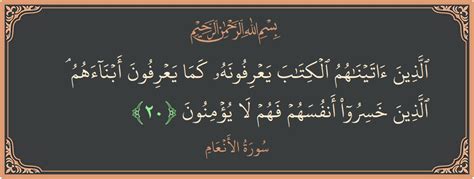 بِسْمِ اللَّهِ الرَّحْمَٰنِ الرَّحِيمِ
الَّذِينَ ءَاتَيْنَاهُمُ الْكِتَابَ يَعْرِفُونَهُۥ كَمَا يَعْرِفُونَ أَبْنَآءَهُمُۘ
الَّذِينَ خَسِرُوٓا۟ أَنفُسَهُمْ فَهُمْ لَا يُؤْمِنُونَ ﴿٢٠﴾
سُورَةُ الأَنْعَامِ